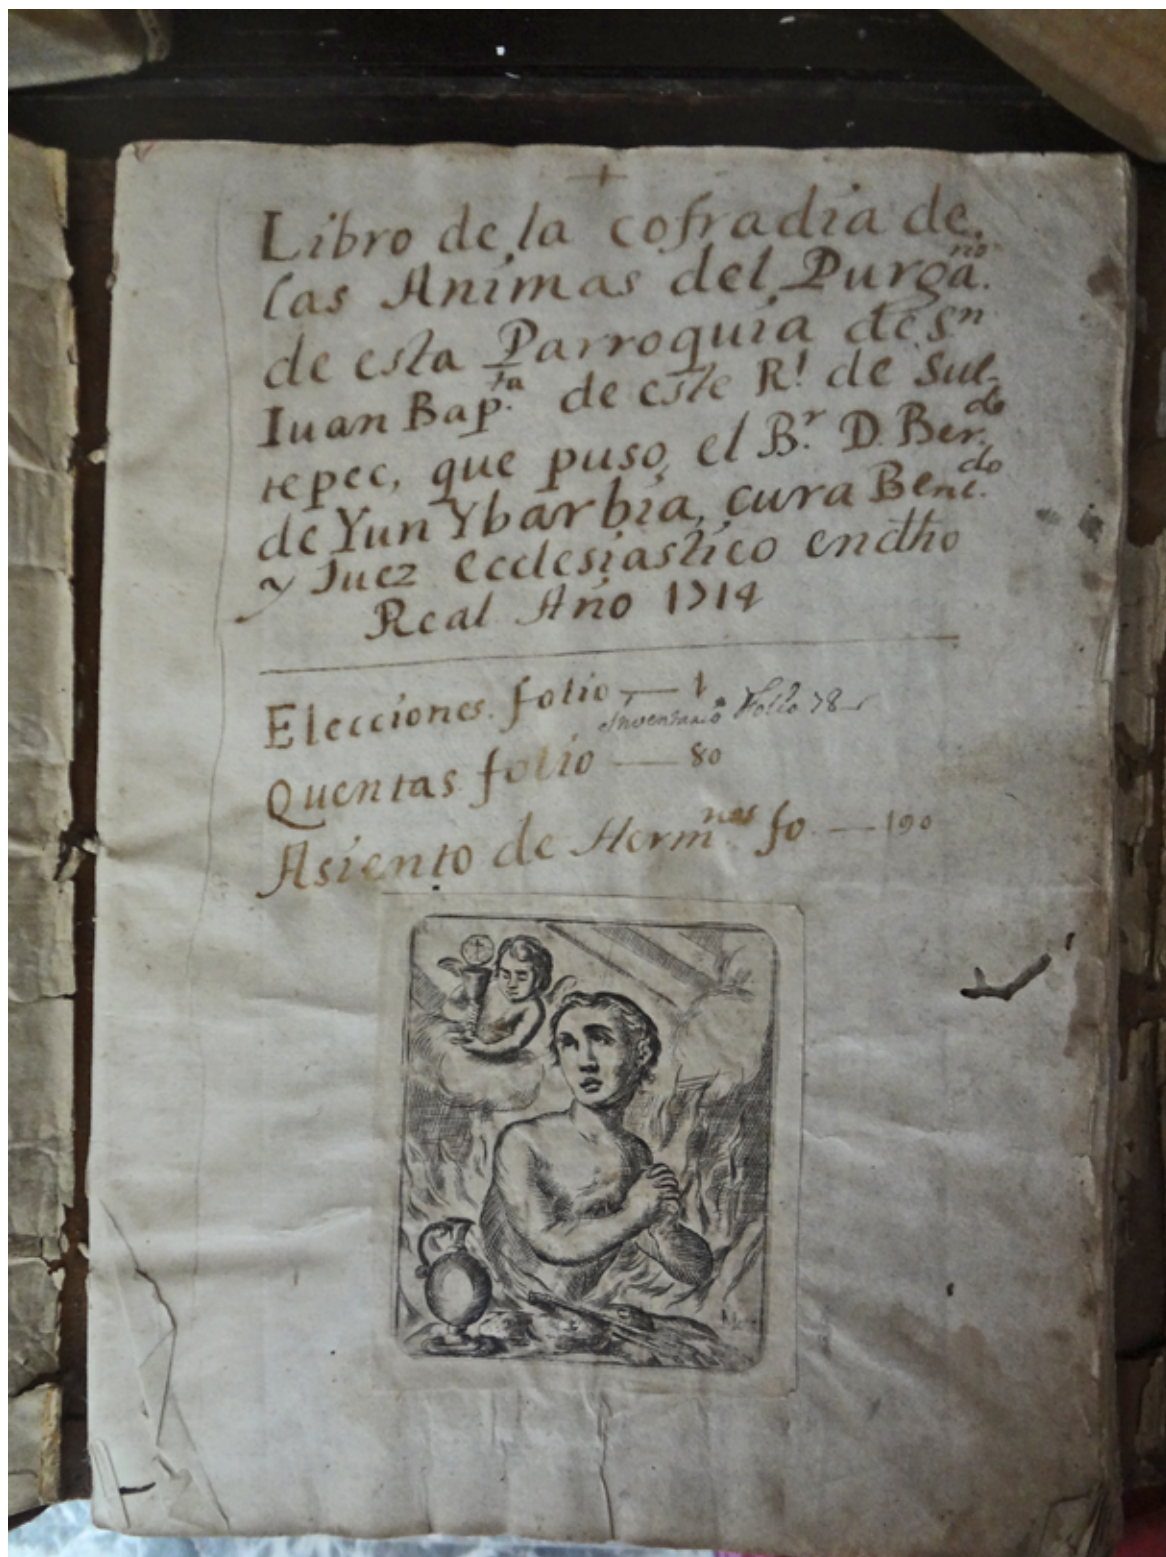 +
Libro de la cofradia de
las Animas del Purga.no
de esta Parroquia de Sn
Iuan Bap.ta de este Rl. de Sul-
tepec, que puso el Br. D. Ber.do
de Yun Ybarbia, cura Beni.do
y Juez Ecclesiastico en dho
Real Año 1714
Elecciones. folio — 1
Inventario Folio 78
Quentas folio — 80
Asiento de Hermnos fo. — 190